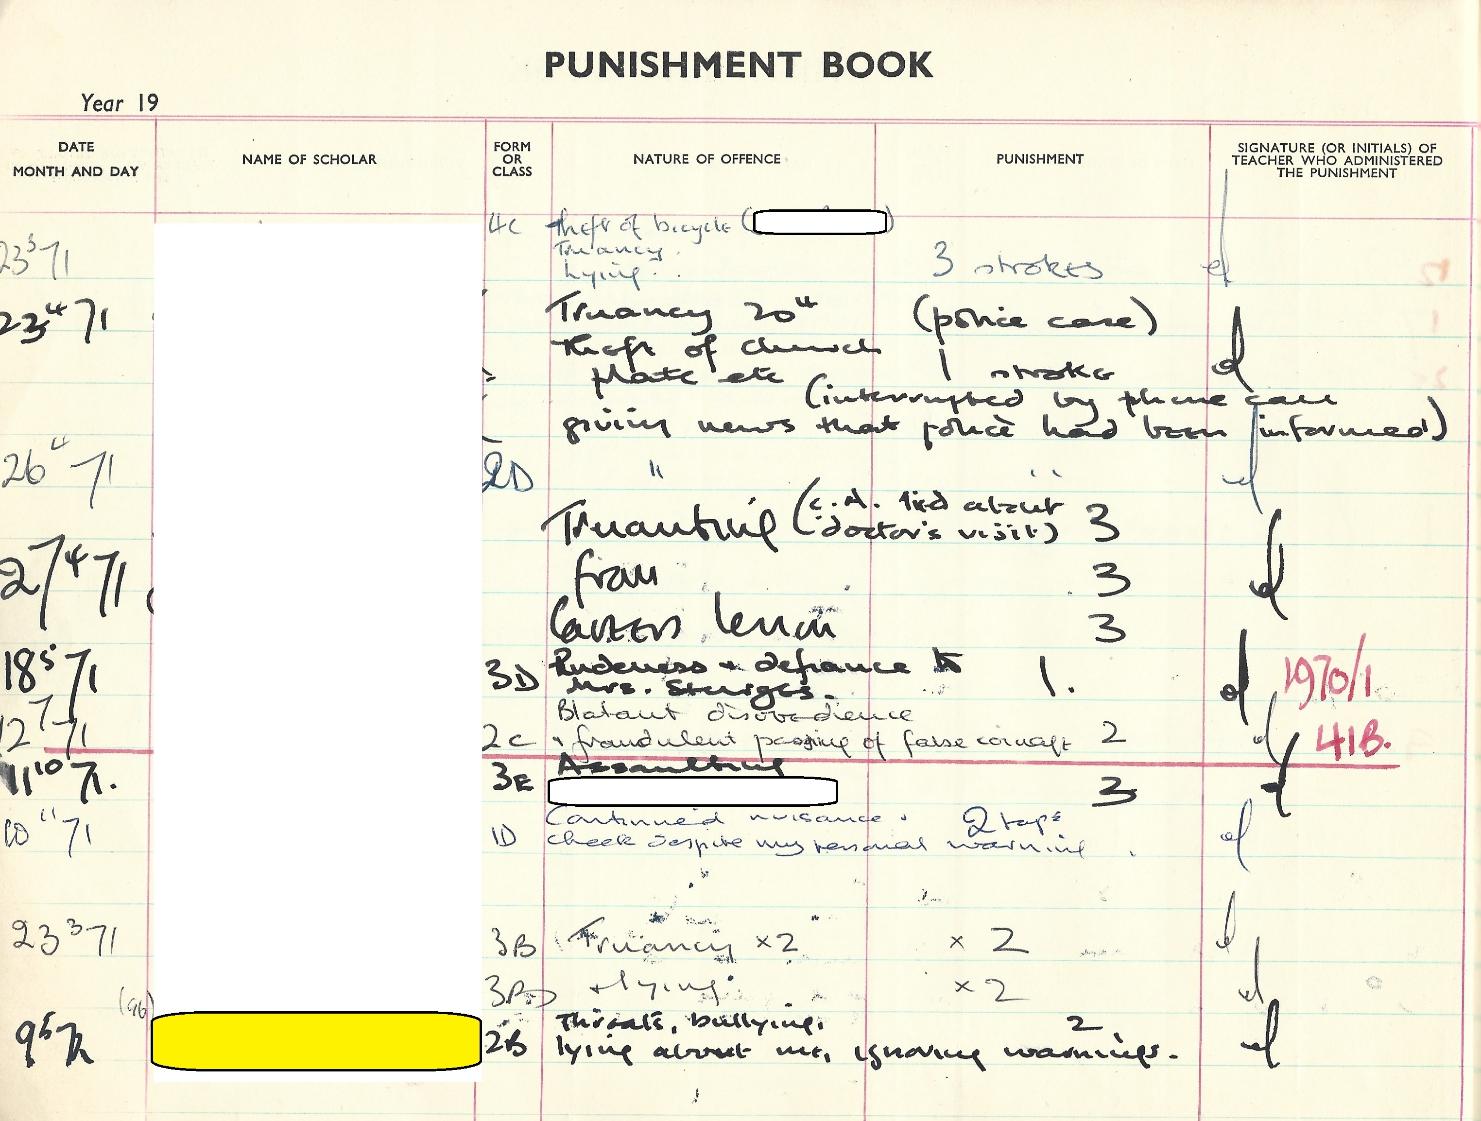 PUNISHMENT BOOK
Year 19
DATE
MONTH AND DAY
NAME OF SCHOLAR
FORM
OR
CLASS
NATURE OF OFFENCE
PUNISHMENT
SIGNATURE (OR INITIALS) OF
TEACHER WHO ADMINISTERED
THE PUNISHMENT
4C theft of bicycle (
Truancy.
23 3 71 Lying. 3 strokes
23 4 71 Truancy 20" (police case)
theft of church
plate etc 1 stroke
(interrupted by phone call
giving news that police had been informed)
26 4 71 2D " "
Truanting (c.A. lied about
doctor's visit) 3
27 4 71 from 3
Careers lesson 3
18 5 71 3D Rudeness + defiance to 1. 1970/1
Mrs. Sturges.
Blatant disobedience
12 7 71 2C + fraudulent passing of false coinage 2 41B.
11 10 71. 3E Assaulting 3
Continued nuisance. 2 taps
10 11 71 1D cheek despite my personal warning.
23 3 71 3B Truancy x2 x 2
+ lying. x 2
Threats, bullying, 2
9 5 72 2B lying about me, ignoring warnings.